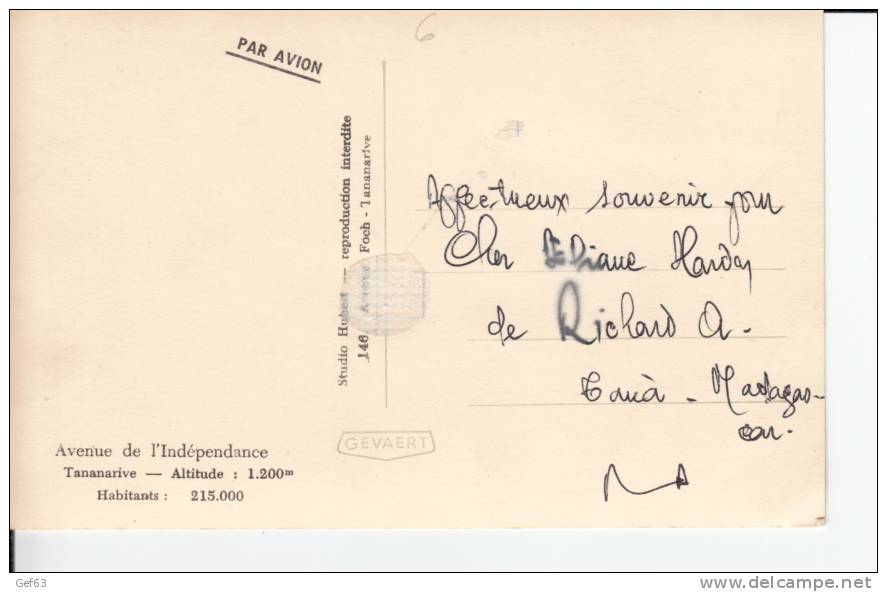 6
PAR AVION
Studio Hubert — reproduction interdite
146, Avenue Foch - Tananarive
Affectueux souvenir pour
Cher Diane Hardy
de Richard A.
Tana - Madagas-
car.
GEVAERT
Avenue de l'Indépendance
Tananarive — Altitude : 1.200m
Habitants : 215.000
Gef63
delcampe.net